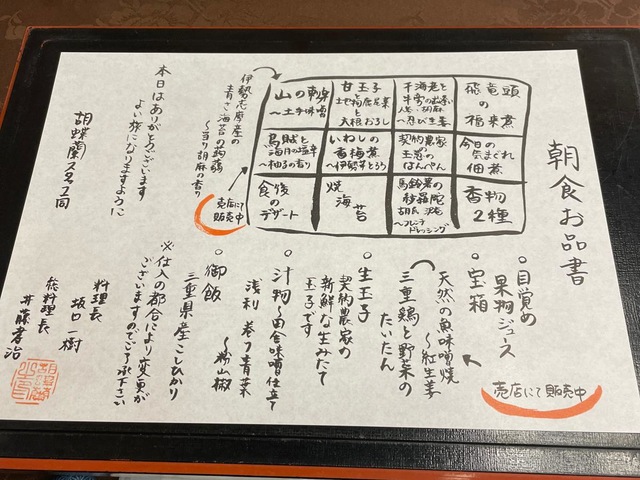 朝食お品書
○目覚め
果物ジュース
○宝箱
天然の魚味噌焼
〜紅生姜
三重鶏と野菜の
たいたん
売店にて販売中
飛竜頭
の
福来煮
干海老と
〜忍び生姜
甘玉子
土地物鹿尾菜
と
大根おろし
山の刺身
〜土手味噌
今日の
気まぐれ
佃煮
契約農家
の
玉葱の
はんぺん
いわしの
香梅煮
〜伊勢芋とろろ
烏賊と
海月の塩辛
〜柚子の香り
香物
2種
馬鈴薯の
〜フレンチ
ドレッシング
焼
海苔
食後
の
デザート
伊勢志摩産の
青さ海苔の蒟蒻
〜当り胡麻の香り
売店にて
販売中
○生玉子
契約農家の
新鮮な生みたて
玉子です
○汁物〜田舎味噌仕立て
浅利 巻フ 青菜
〜粉山椒
○御飯
三重県産こしひかり
※仕入の都合により変更が
ございますのでご了承下さい
本日はありがとうございます
よい旅になりますように
胡蝶蘭スタッフ一同
料理長
坂口一樹
総料理長
井藤孝治